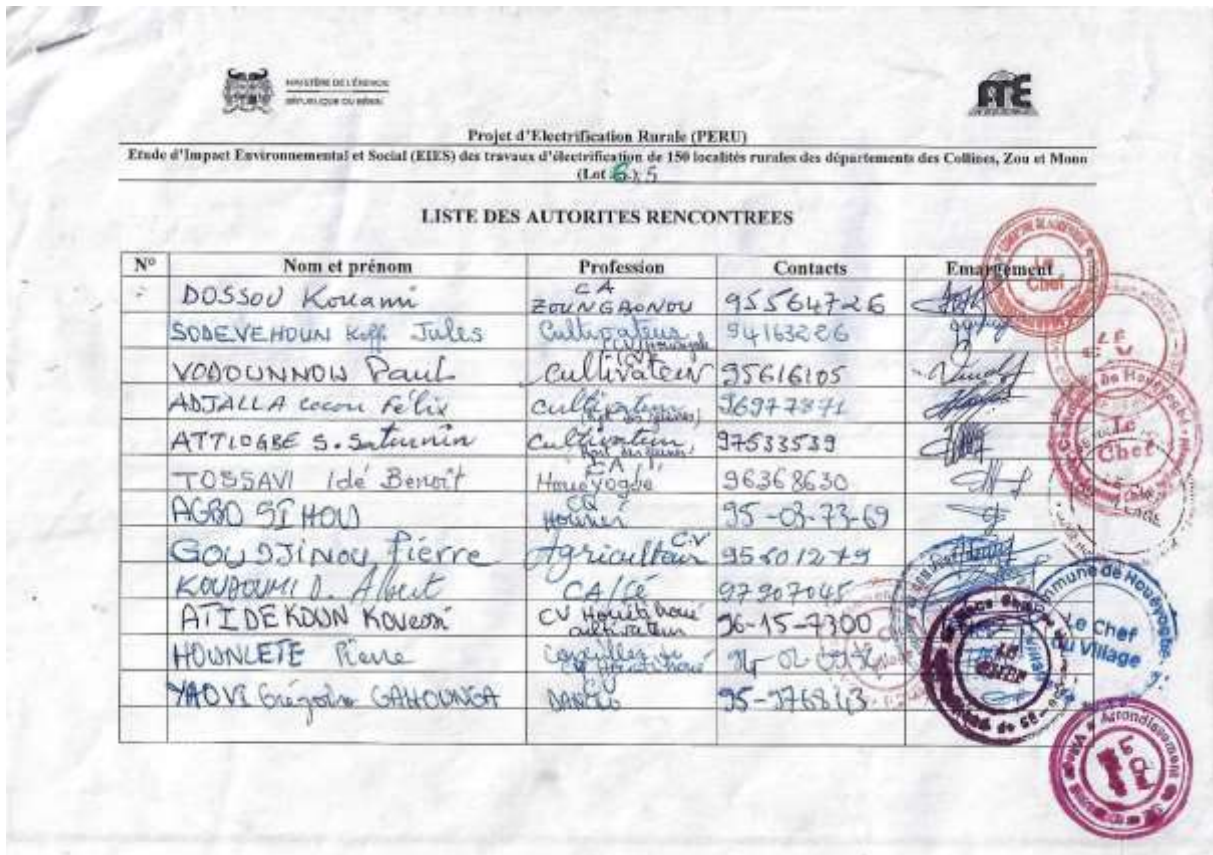 MINISTÈRE DE L'ÉNERGIE
RÉPUBLIQUE DU BÉNIN
Projet d'Electrification Rurale (PERU)
Etude d'Impact Environnemental et Social (EIES) des travaux d'électrification de 150 localités rurales des départements des Collines, Zou et Mono
(Lot 6.); 5
LISTE DES AUTORITES RENCONTREES
N° Nom et prénom Profession Contacts Emargement
DOSSOU Kouami CA ZOUNGBONOU 95564726
SODEVEHOUN Koffi Jules Cultivateur 94163226
VODOUNNOU Paul Cultivateur 95616105
ADJALLA cocou Félix Cultivateur 96977871
ATTIOGBE S. Saturnin Cultivateur 97533539
TOSSAVI Idé Benoît CA Houéyogbé 96368630
AGBO SIHOU 95-03-73-69
GOUDJINOU Pierre Agriculteur C.V 95601279
KOUDOUMI D. Albert CA/Cé 97907045
ATIDEKOUN CV Houitihoué cultivateur 96-15-7300
HOUNLETE Pierre
YAOVI Grégoire GAHOUNGA 95-976843
Le Chef
LE C V
Le Chef
Commune de Houéyogbé
Le Chef du Village
Arrondissement
Le Chef